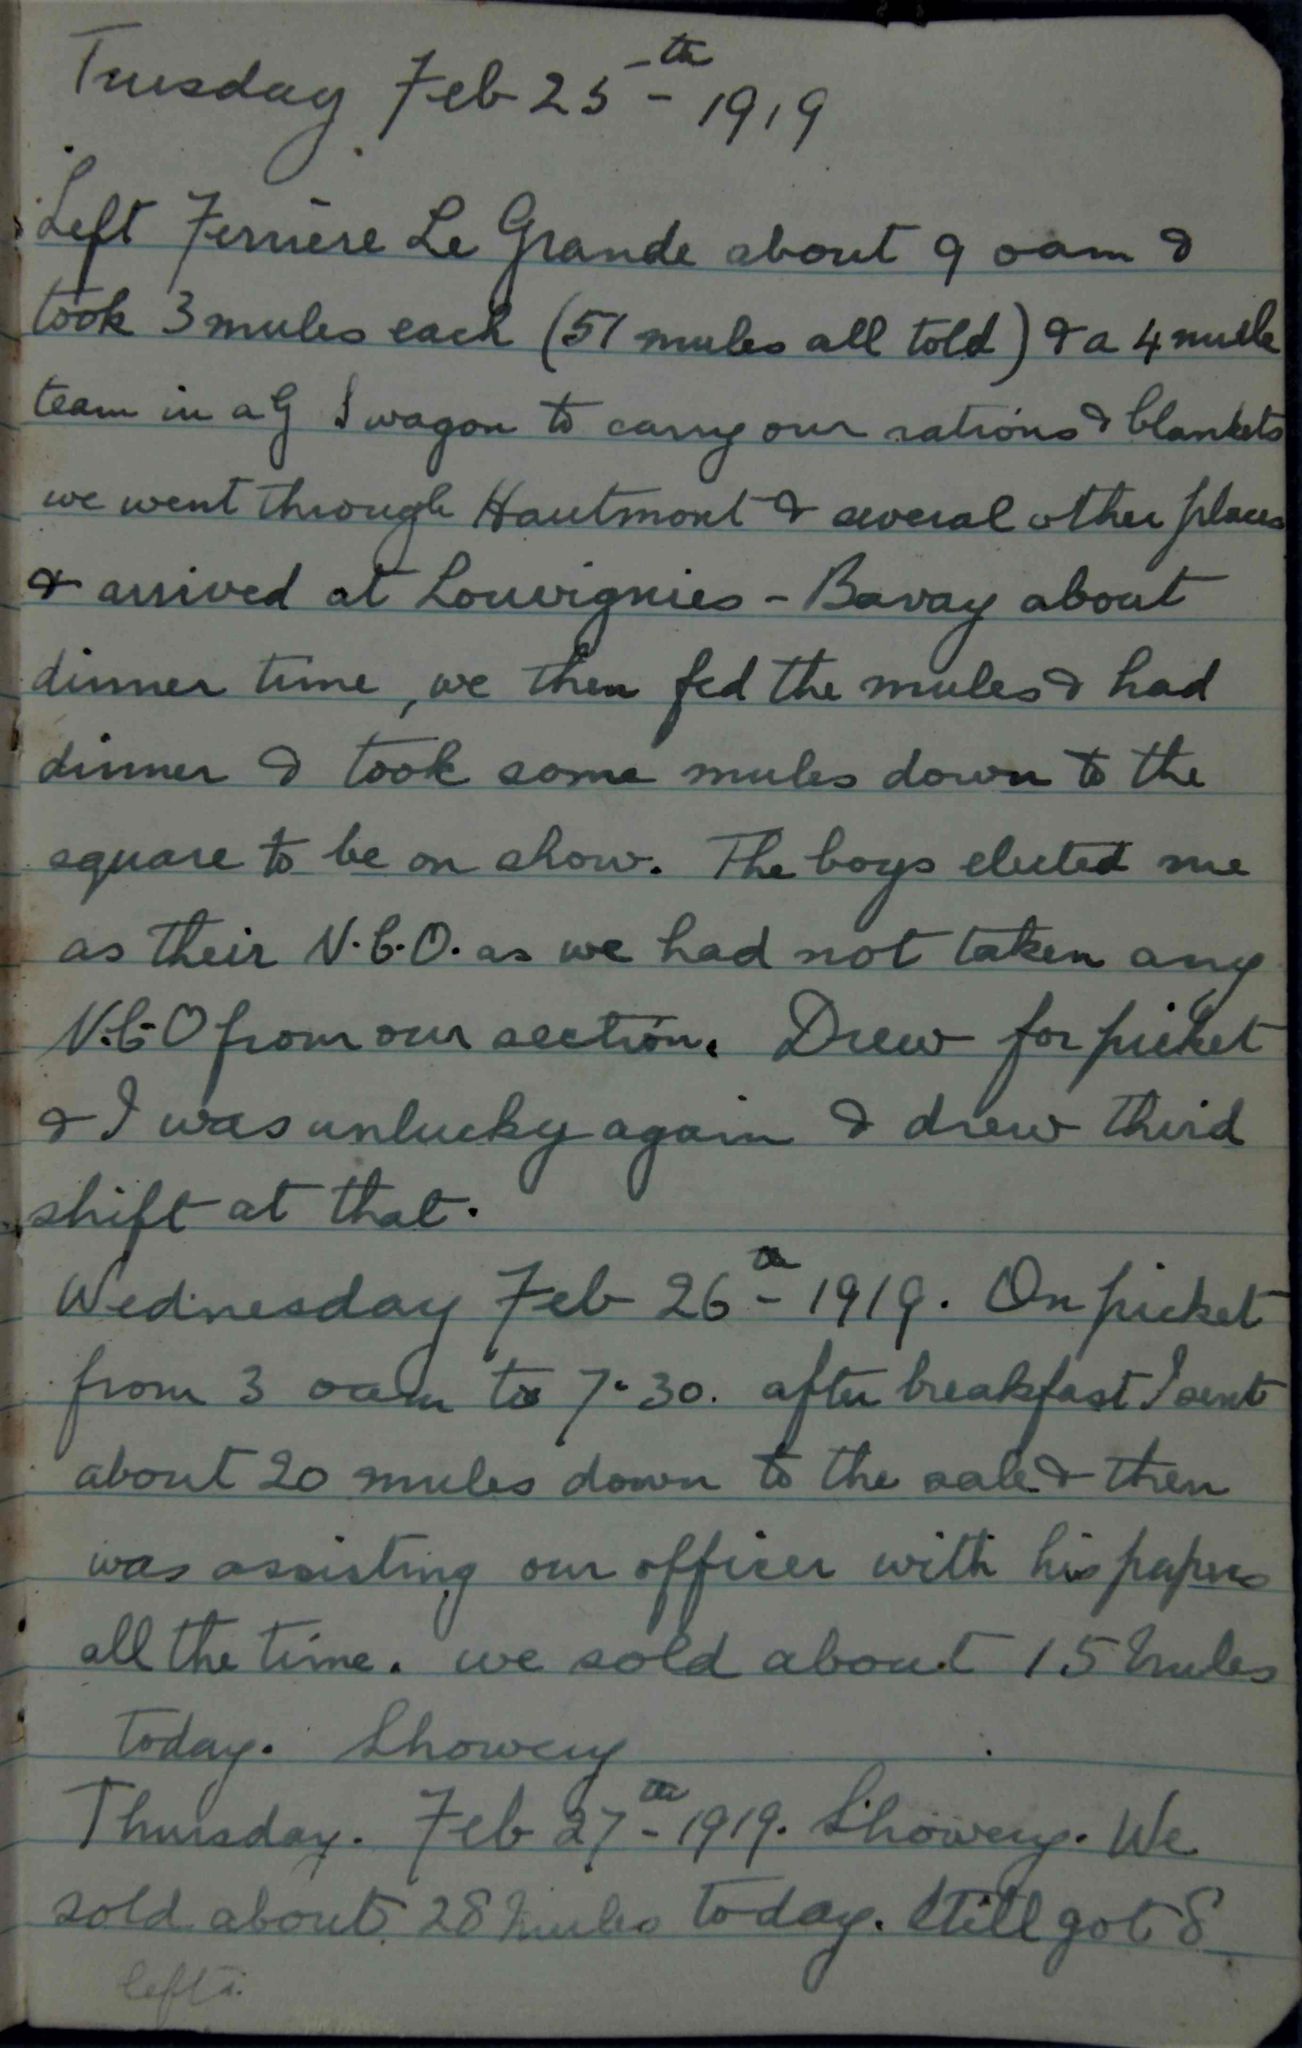 Tuesday Feb 25th - 1919
Left Ferrière Le Grande about 9 oam &
took 3 mules each (51 mules all told) & a 4 mule
team in a G S wagon to carry our rations & blankets
we went through Hautmont & several other places
& arrived at Louvignies - Bavay about
dinner time, we then fed the mules & had
dinner & took some mules down to the
square to be on show. The boys elected me
as their N.C.O. as we had not taken any
N.C.O from our section. Drew for picket
& I was unlucky again & drew third
shift at that.
Wednesday Feb 26th - 1919. On picket
from 3 oam to 7.30. after breakfast I sent
about 20 mules down to the sale & then
was assisting our officer with his papers
all the time. we sold about 15 mules
today. Showery
Thursday. Feb 27th - 1919. Showery. We
sold about 28 mules today. Still got 8
left.